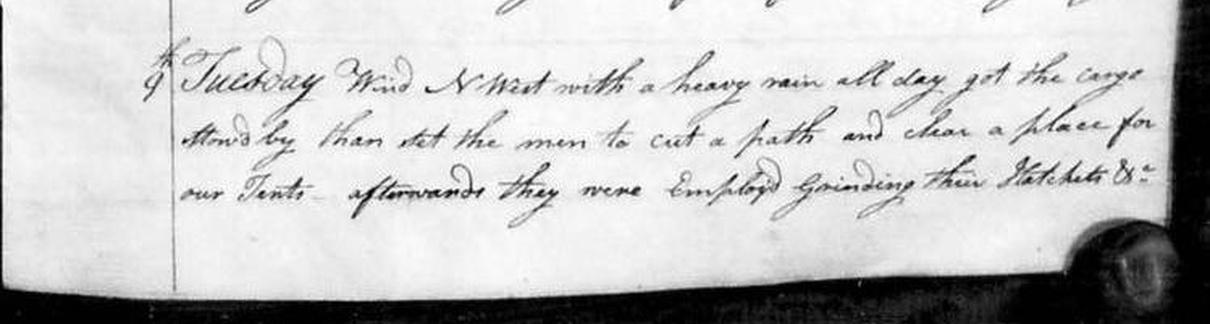 9th Tuesday Wind N West with a heavy rain all day got the cargo
stow'd by than set the men to cut a path and clear a place for
our Tents - afterwards they were Employ'd Grinding their Hatchets &c